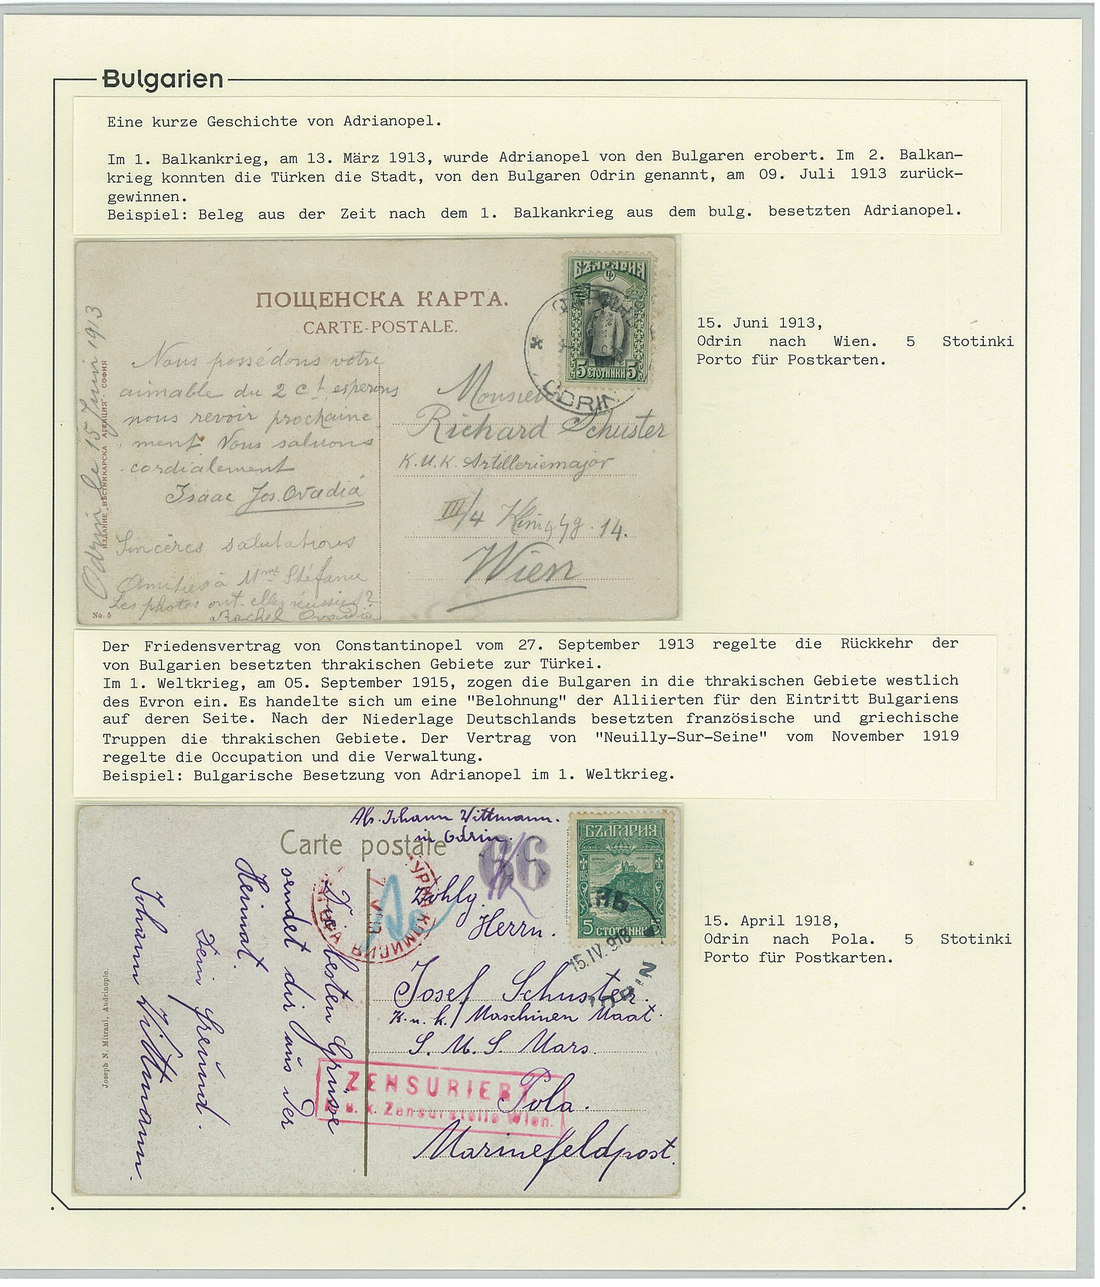 Bulgarien
Eine kurze Geschichte von Adrianopel.
Im 1. Balkankrieg, am 13. März 1913, wurde Adrianopel von den Bulgaren erobert. Im 2. Balkan-
krieg konnten die Türken die Stadt, von den Bulgaren Odrin genannt, am 09. Juli 1913 zurück-
gewinnen.
Beispiel: Beleg aus der Zeit nach dem 1. Balkankrieg aus dem bulg. besetzten Adrianopel.
ПОЩЕНСКА КАРТА.
CARTE-POSTALE.
БЪЛГАРИЯ
5 СТОТИНКИ 5
ODRIN
Odrin le 15 Juin 1913
ИЗДАНИЕ „ВѢСТНИКАРСКА АГЕНЦИЯ" - СОФИЯ
No. 5
Nous possédons votre
aimable du 2 ct, esperons
nous revoir prochaine
ment Nous saluons
cordialement
Isaac Jos. Ovadia
Sincères salutations
Amitiés à Mme Stéfanie
Les photos ont elles réussies?
Rachel Ovadia
Monsieur
Richard Schuster
K.U.K. Artilleriemajor
III/4 14.
Wien
15. Juni 1913,
Odrin nach Wien. 5 Stotinki
Porto für Postkarten.
Der Friedensvertrag von Constantinopel vom 27. September 1913 regelte die Rückkehr der
von Bulgarien besetzten thrakischen Gebiete zur Türkei.
Im 1. Weltkrieg, am 05. September 1915, zogen die Bulgaren in die thrakischen Gebiete westlich
des Evron ein. Es handelte sich um eine "Belohnung" der Alliierten für den Eintritt Bulgariens
auf deren Seite. Nach der Niederlage Deutschlands besetzten französische und griechische
Truppen die thrakischen Gebiete. Der Vertrag von "Neuilly-Sur-Seine" vom November 1919
regelte die Occupation und die Verwaltung.
Beispiel: Bulgarische Besetzung von Adrianopel im 1. Weltkrieg.
Ab. Johann Wittmann.
in Odrin.
Carte postale
66
БЪЛГАРИЯ
5 СТОТИНКИ
15.IV.918
ODRIN
Die besten Grüsse
sendet dir aus der
Heimat.
Dein freund.
Johann Wittmann.
Joseph N. Mitrani, Andrinople.
Wohlg.
Herrn.
Josef Schuster.
K.u.k. Maschinen Maat.
S. M. S. Mars.
Pola.
Marinefeldpost.
ZENSURIERT
K. u. k. Zensurstelle Wien.
15. April 1918,
Odrin nach Pola. 5 Stotinki
Porto für Postkarten.